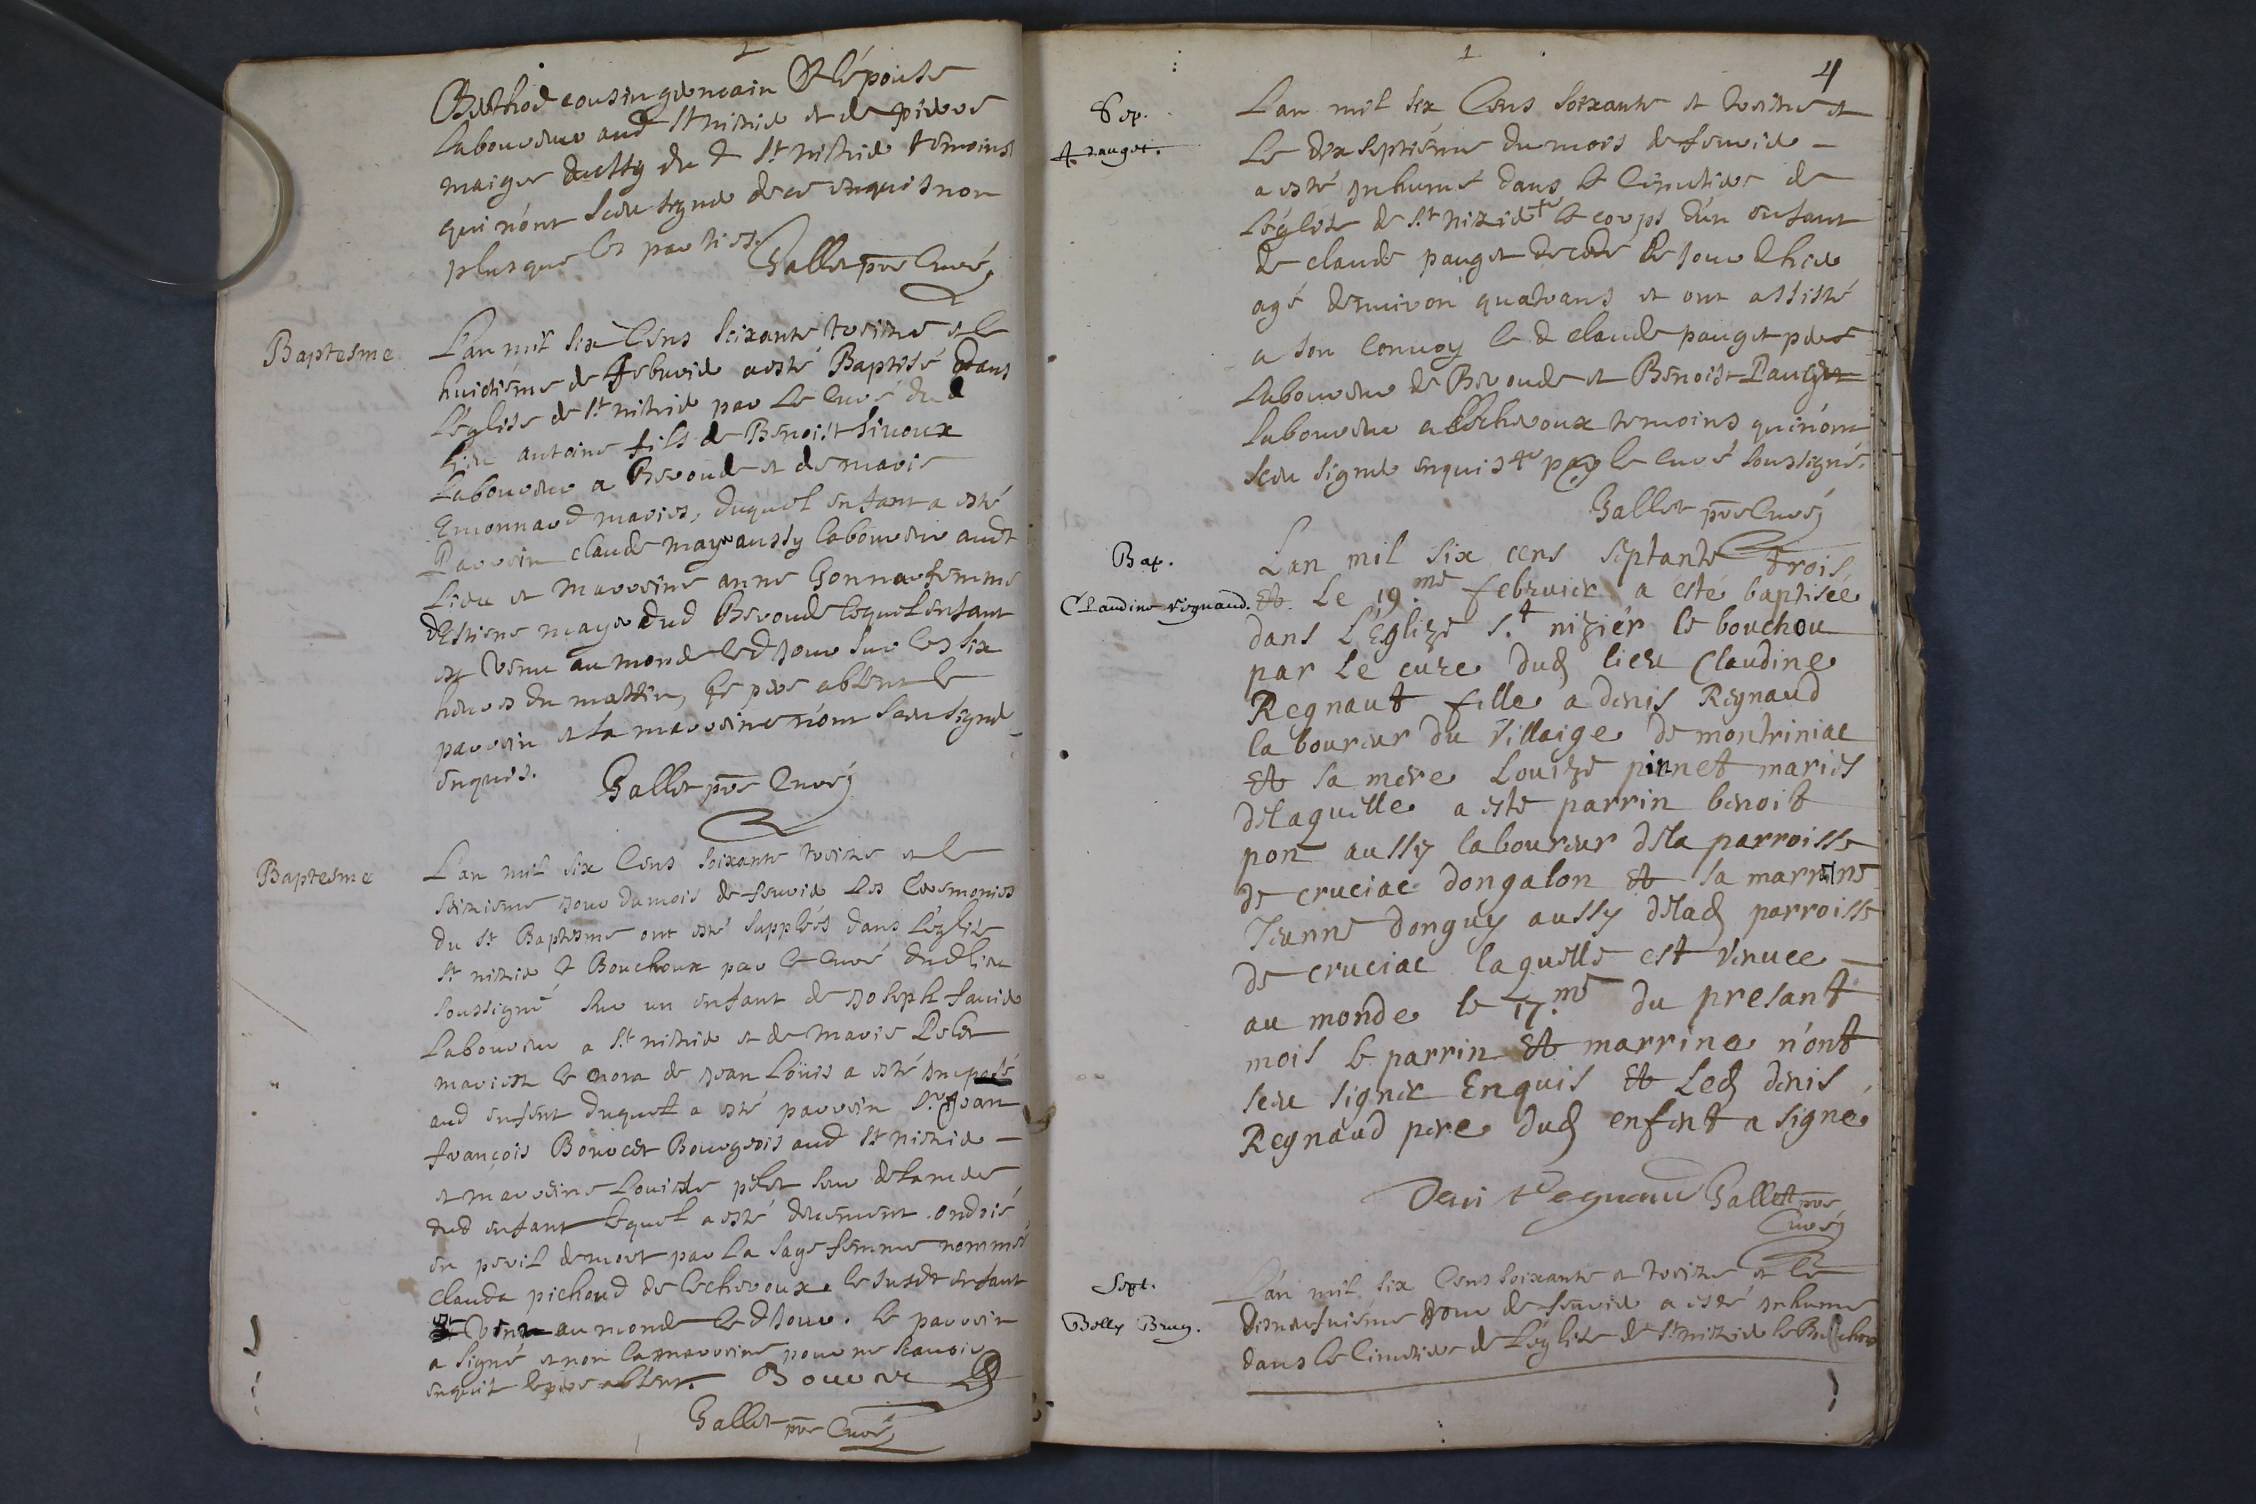 Berthod cousin germain de l'épouse
laboureur aud St nizier et de pierre
maigre du d St nizier temoins
qui n'ont sceu signer de ce enquis non
plus que les parties. Gallet pre Curé
Baptesme
L'an mil six Cens Soixante treize et le
huictiéme de febvrier a esté Baptisé dans
L'église de St nizier par Le Curé dud
Lieu antoine fils de Benoist Sivoux
Laboureur a Beroude et de marie
Emonnard mariés, duquel enfant a esté
Parrein claude maye aussy laboureur audt
Lieu et marreine anne Gonnar femme
d'Estiene maye dud Beroude lequel enfant
est Venu au monde led Jour sur les six
heures du mattin, Le pere absent le
parrein et La marreine n'ont sceu signer
enquis.
Gallet pre Curé
Baptesme
L'an mil six Cens soixante treize et le
seiziéme Jour du mois de fevrier Les Ceremonies
du St Baptesme ont esté suppléés dans L'église
St nizier le Bouchoux par le Curé dud lieu
soussigné sur un enfant de Joseph favier
Laboureur a St nizier et de Marie Pelet
mariés et le nom de Jean Loüis a esté imposé
aud enfant duquel a esté parrein Sr Jean
françois Bouvret Bourgeois aud St nizier —
et marreine Louise pelet seur de la mere
dud enfant lequel a esté deuement ondoié
en peril de mort par La sage femme nommée
clauda pichoud de lecheroux. le susdt enfant
est Venu au monde led Jour. le parrein
a signé et non La marreine pour ne scavoir
enquis le pere absent. Bouvret
Gallet pre Curé
1
4
Sep.
pauget.
L'an mil six Cens soixante et treize et
Le dix septiéme du mois de fevrier —
a esté Inhumé dans le Cimetiere de
L'église de St nizier le corps d'un enfant
de claude pauget decedé Le Jour d'hier
agé d'environ quatre ans et ont assisté
a son Convoy le d claude pauget pere
Laboureur de Beroude et Benoist Pauget
laboureur a Lecheroux temoins qui n'ont
sceu signer enquis par le Curé soussigné.
Gallet pre Curé
Bap.
Claudine regnaud.
Lan mil six cens septante trois
Et Le 19.me febvrier a esté baptisée
dans L'Eglize S.t nizier le bouchou
par Le cure dud lieu Claudine
Regnaut fille a denis Regnaud
laboureur du Villaige de montriniac
Et sa mere Louize pinnet mariés
de laquelle a este parrin benoit
pon aussy laboureur de la parroisse
de cruciac dongalon Et sa marrine
Jeanne donguy aussy de lad parroisse
de cruciac laquelle est venuee —
au monde le 17.me du presant
mois le parrin Et marrine n'ont
seu signer Enquis Et Led denis
Regnaud pere dud enfent a signé
Deni Regnaud Gallet pre
Curé
Sept.
Bolly Bruy.
L'an mil six Cens soixante et treize et Le
dixneufuiéme Jour de fevrier a esté Inhumé
dans le Cimetiere de L'église de St nizier le Bouchou